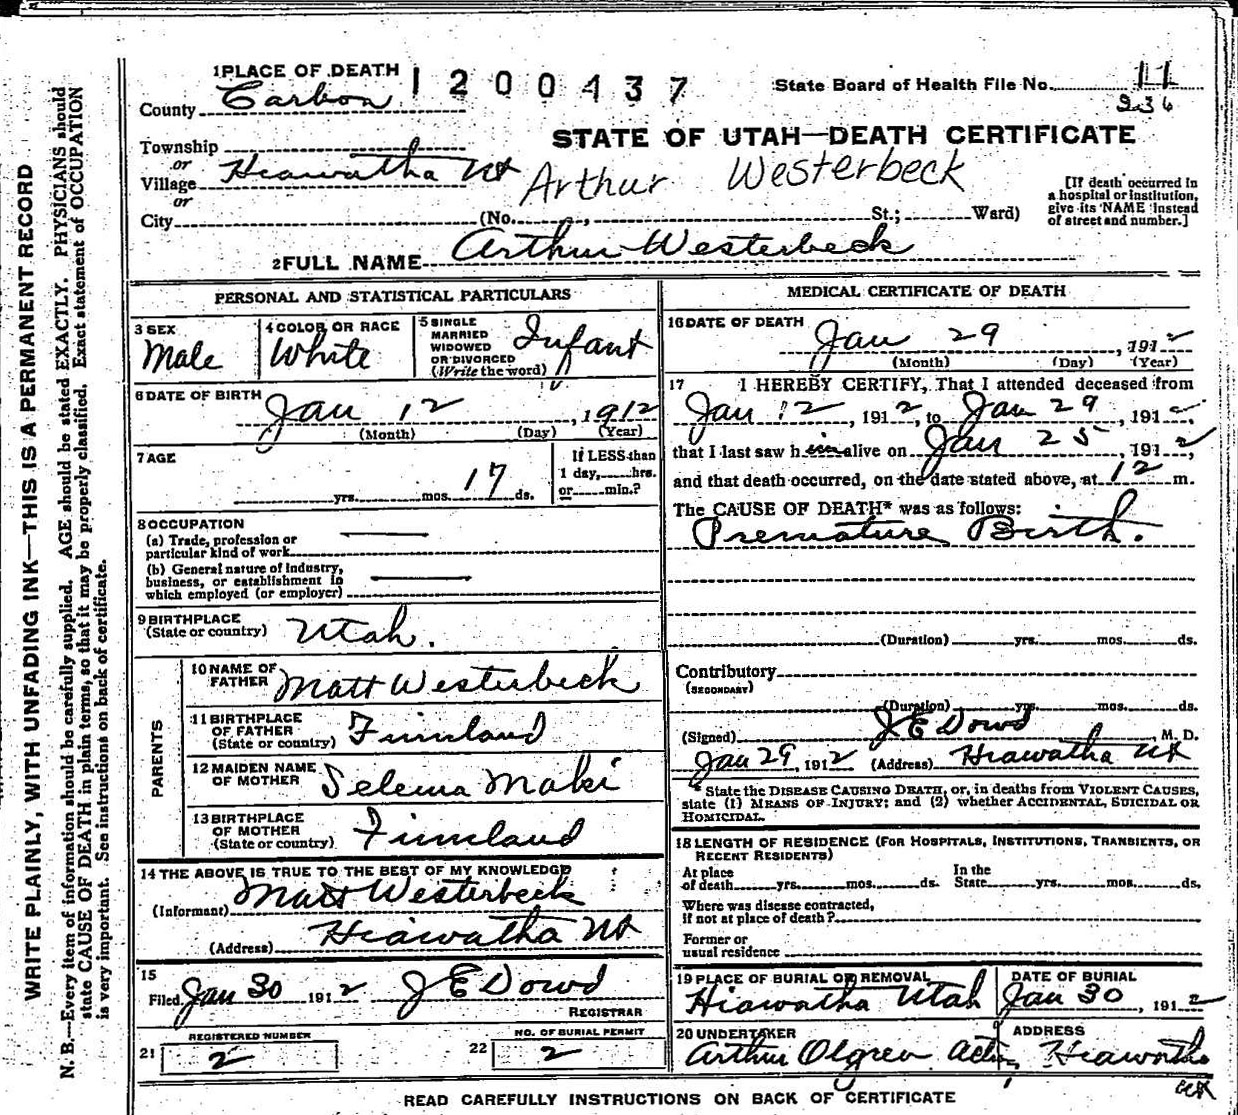 1 PLACE OF DEATH
1 2 0 0 4 3 7
State Board of Health File No. 11
236
County Carbon
STATE OF UTAH—DEATH CERTIFICATE
Township
or
Village Hiawatha Ut
Arthur Westerbeck
or
City (No. , St.; Ward)
[If death occurred in
a hospital or institution,
give its NAME instead
of street and number.]
2 FULL NAME Arthur Westerbeck
PERSONAL AND STATISTICAL PARTICULARS
3 SEX
Male
4 COLOR OR RACE
White
5 SINGLE
MARRIED
WIDOWED
OR DIVORCED
(Write the word)
Infant
6 DATE OF BIRTH
Jan 12, 1912
(Month) (Day) (Year)
7 AGE
yrs. mos. 17 ds.
If LESS than
1 day, hrs.
or min.?
8 OCCUPATION
(a) Trade, profession or
particular kind of work
(b) General nature of industry,
business, or establishment in
which employed (or employer)
9 BIRTHPLACE
(State or country) Utah.
PARENTS
10 NAME OF
FATHER Matt Westerbeck
11 BIRTHPLACE
OF FATHER
(State or country) Finnland
12 MAIDEN NAME
OF MOTHER Selema Maki
13 BIRTHPLACE
OF MOTHER
(State or country) Finnland
14 THE ABOVE IS TRUE TO THE BEST OF MY KNOWLEDGE
(Informant) Matt Westerbeck
(Address) Hiawatha Ut
15
Filed Jan 30 1912 J E Dowd
REGISTRAR
REGISTERED NUMBER
21 2
NO. OF BURIAL PERMIT
22 2
MEDICAL CERTIFICATE OF DEATH
16 DATE OF DEATH
Jan 29, 1912
(Month) (Day) (Year)
17 I HEREBY CERTIFY, That I attended deceased from
Jan 12, 1912, to Jan 29, 1912,
that I last saw him alive on Jan 25, 1912,
and that death occurred, on the date stated above, at 12 m.
The CAUSE OF DEATH* was as follows:
Premature Birth.
(Duration) yrs. mos. ds.
Contributory
(SECONDARY)
(Duration) yrs. mos. ds.
(Signed) J E Dowd, M. D.
Jan 29, 1912 (Address) Hiawatha Ut
* State the DISEASE CAUSING DEATH, or, in deaths from VIOLENT CAUSES,
state (1) MEANS OF INJURY; and (2) whether ACCIDENTAL, SUICIDAL OR
HOMICIDAL.
18 LENGTH OF RESIDENCE (FOR HOSPITALS, INSTITUTIONS, TRANSIENTS, OR
RECENT RESIDENTS)
At place
of death yrs. mos. ds.
In the
State yrs. mos. ds.
Where was disease contracted,
if not at place of death?
Former or
usual residence
19 PLACE OF BURIAL OR REMOVAL
Hiawatha Utah
DATE OF BURIAL
Jan 30, 1912
20 UNDERTAKER
Arthur Olgren
ADDRESS
Hiawatha
Ut
READ CAREFULLY INSTRUCTIONS ON BACK OF CERTIFICATE
WRITE PLAINLY, WITH UNFADING INK—THIS IS A PERMANENT RECORD
N. B.—Every item of information should be carefully supplied. AGE should be stated EXACTLY. PHYSICIANS should
state CAUSE OF DEATH in plain terms, so that it may be properly classified. Exact statement of OCCUPATION
is very important. See instructions on back of certificate.